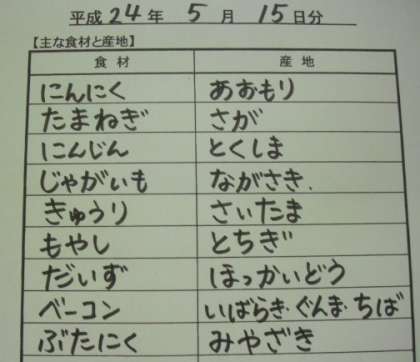 平成 24 年 5 月 15 日分
【主な食材と産地】
食材 産地
にんにく あおもり
たまねぎ さが
にんじん とくしま
じゃがいも ながさき.
きゅうり さいたま
もやし とちぎ
だいず ほっかいどう
ベーコン いばらき・ぐんま・ちば
ぶたにく みやざき